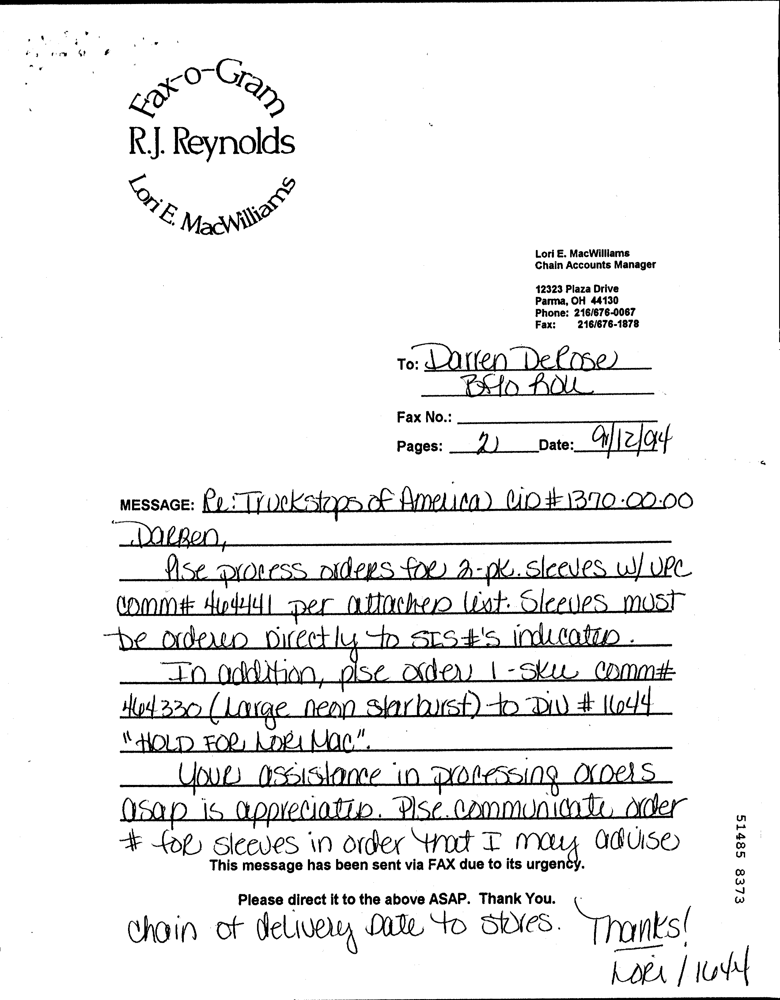 Fax-o-Gram
R.J. Reynolds
Lori E. MacWilliams
Lori E. MacWilliams
Chain Accounts Manager
12323 Plaza Drive
Parma, OH 44130
Phone: 216/676-0067
Fax: 216/676-1878
To: Darren DeRose
Bflo ROU
Fax No.:
Pages: 2 Date: 9/12/94
MESSAGE: Re: Truckstops of America CID# 1370-00-00
Darren,
Plse process orders for 2-pk. sleeves w/ UPC
comm# 464441 per attached list. Sleeves must
be ordered directly to SIS#'s indicated.
In addition, plse order 1-sku comm#
464330 (Large neon starburst) to Div # 1644
"HOLD FOR LORI Mac".
Your assistance in processing orders
asap is appreciated. Plse. communicate order
# for sleeves in order that I may advise
This message has been sent via FAX due to its urgency.
Please direct it to the above ASAP. Thank You.
chain of delivery date to stores. Thanks!
Lori / 1644
51485 8373